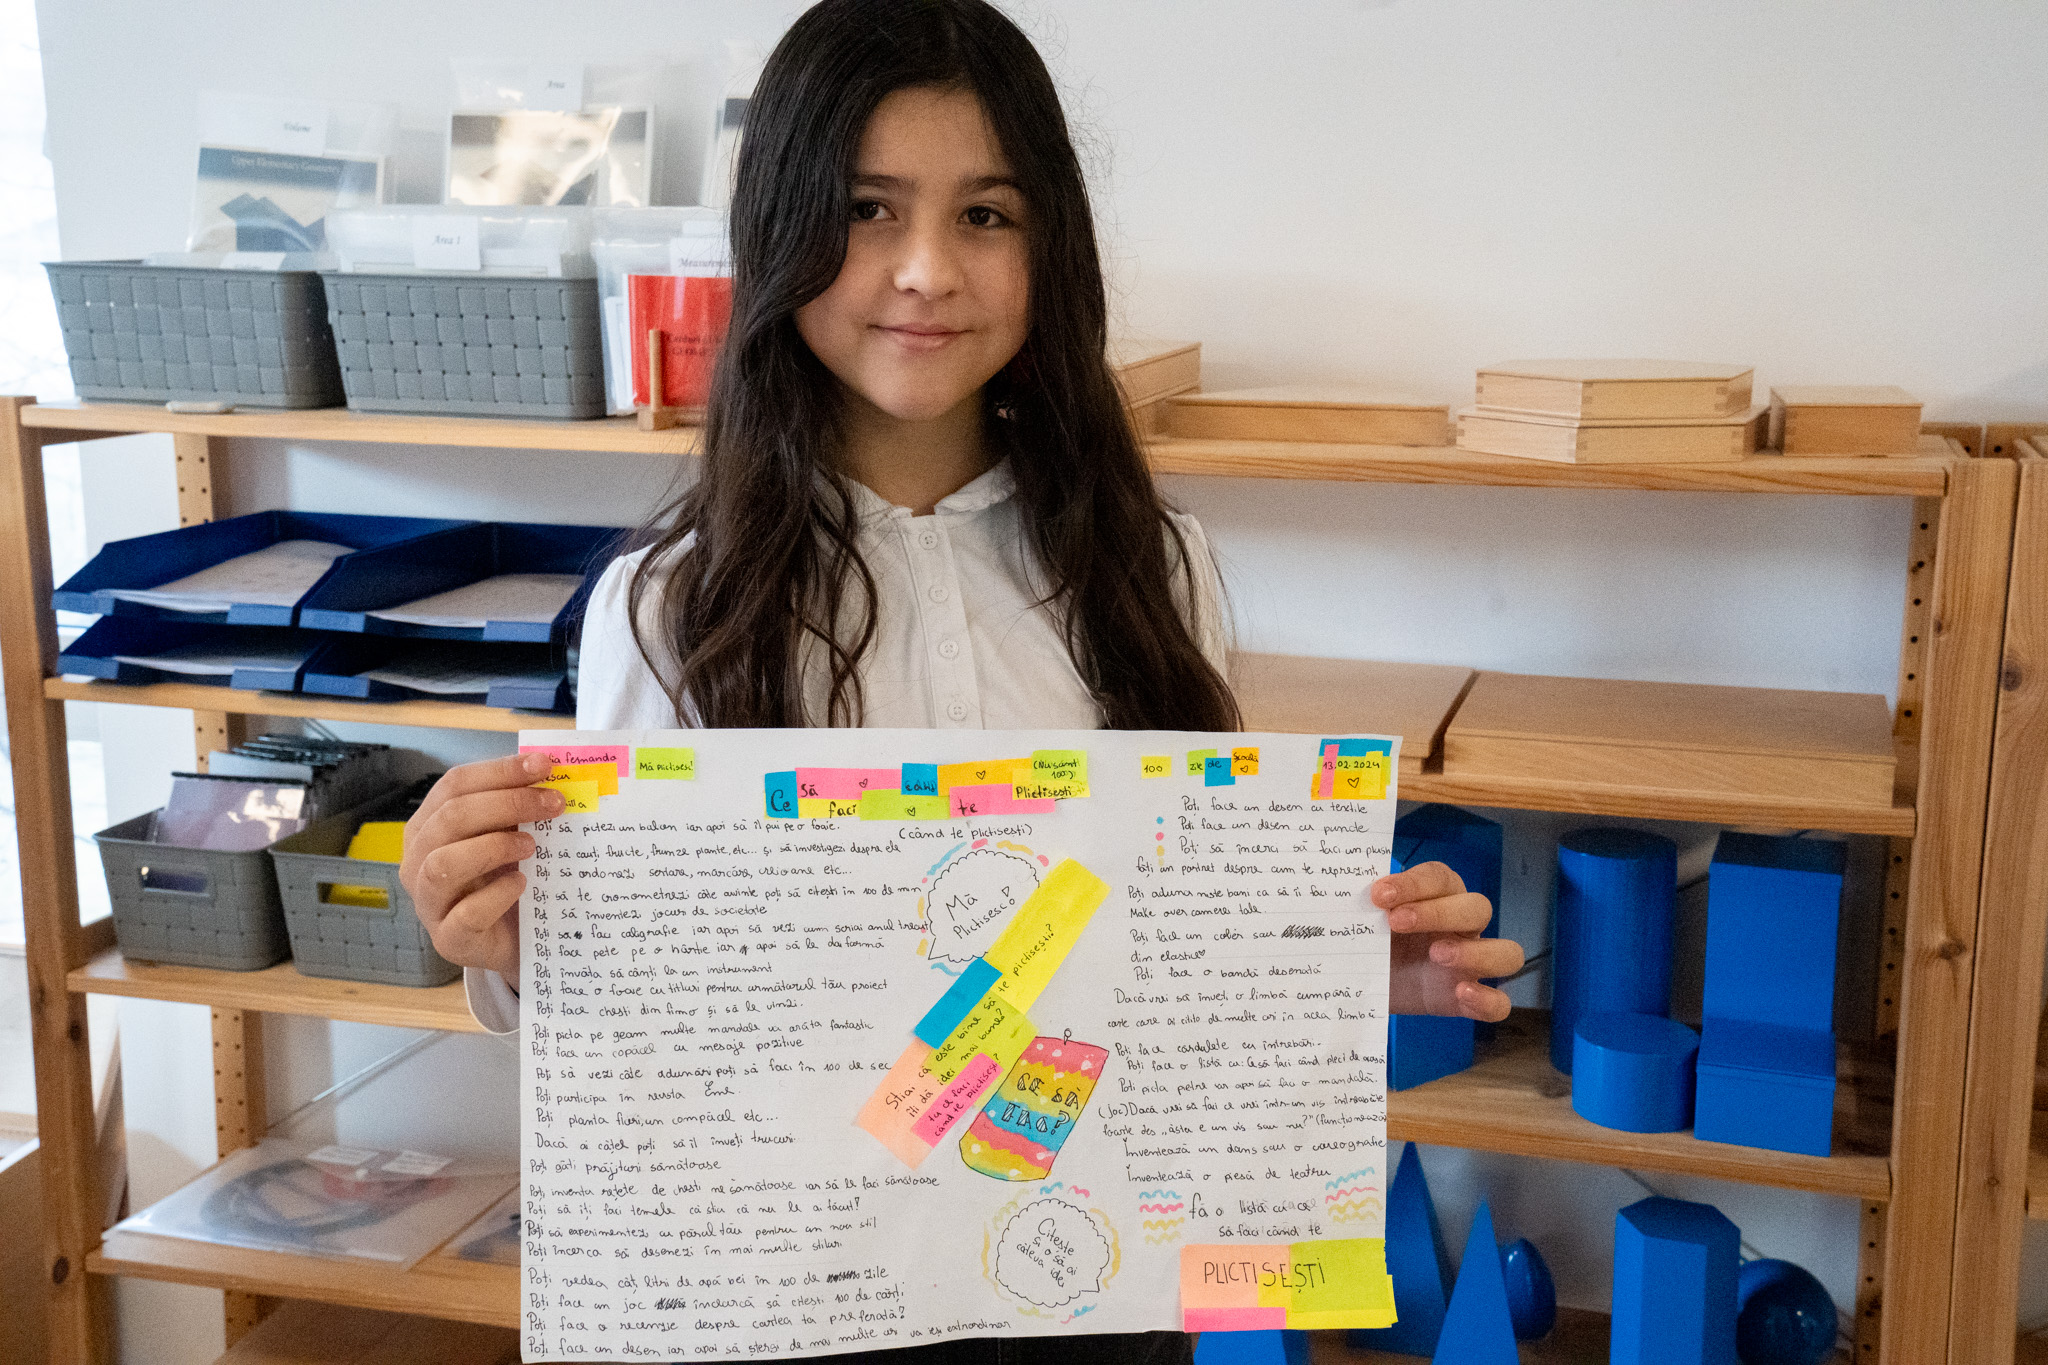 Volume
Upper Elementary Geometry
Area
Area 1
fernanda
Mă plictisesc!
Ce Să faci când te Plictisești
(Nu sunt 100%)
100 zile de școală
13.02.2024
Poți să pictezi un balon iar apoi să îl pui pe o foaie.
Poți să cauți fructe, frunze plante, etc... și să investigezi despre ele
Poți să ordonezi sertare, mărcăre, creioane etc...
Poți să te cronometrezi câte cuvinte poți să citești în 100 de min
Poți să inventezi jocuri de societate
Poți să faci caligrafie iar apoi să vezi cum scriai anul trecut
Poți face pete pe o hârtie iar apoi să le dai formă
Poți învăța să cânți la un instrument
Poți face o foaie cu titluri pentru următorul tău proiect
Poți face chesti din fimo și să le vinzi.
Poți picta pe geam multe mandale va arăta fantastic
Poți face un copăcel cu mesaje pozitive
Poți să vezi câte adunări poți să faci în 100 de sec
Poți participa în revista
Poți planta flori, un compăcel etc...
Dacă ai cățel poți să îl înveți trucuri.
Poți găti prăjituri sănătoase
Poți inventa rețete de chesti ne sănătoase iar să le faci sănătoase
Poți să îți faci temele că știu că nu le ai făcut!
Poți să experimentez cu părul tău pentru un nou stil
Poți încerca să desenezi în mai multe stiluri
Poți vedea câți litri de apă bei în 100 de zile
Poți face un joc încearcă să citești 100 de cărți
Poți face o recenzie despre cartea ta preferată?
Poți face un desen iar apoi să ștergi de mai multe ori va ieși extraordinar
(când te plictisești)
Mă Plictisesc!
Știai că este bine să te plictisești?
îți dă idei mai bune?
tu ce faci când te plictisești?
CE SĂ FAC?
Citește și o să ai câteva idei
Poți face un desen cu textile
Poți face un desen cu puncte
Poți să încerci să faci un plush
făți un portret despre cum te reprezinți
Poți aduna niste bani ca să îi faci un
Make over camerei tale.
Poți face un colier sau brățări
din elastic
Poți face o bandă desenată
Dacă vrei să înveți o limbă cumpără o
carte care ai citit-o de multe ori în acea limbă
Poți face cardulete cu întrebări.
Poți face o listă cu: Ce să faci când pleci de acasă
Poți picta pietre iar apoi să faci o mandală.
(joc) Dacă vrei să faci ce vrei într-un vis întreabăte
foarte des „ăsta e un vis sau nu?" (funcționează
Inventează un dans sau o coreografie
Inventează o piesă de teatru
fă o listă cu ce
să faci când te
PLICTISEȘTI